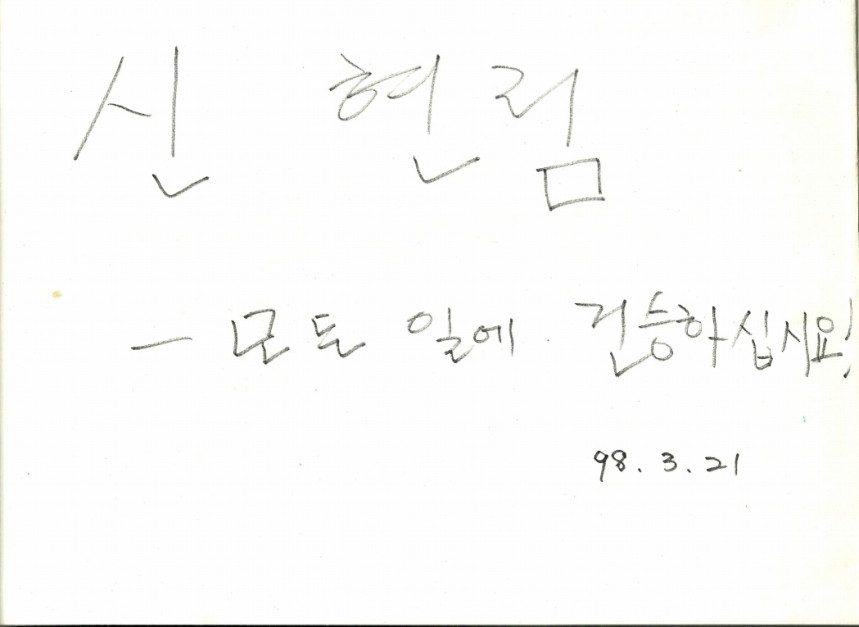 신 현 림
— 모든 일에 건승하십시요!
98. 3. 21